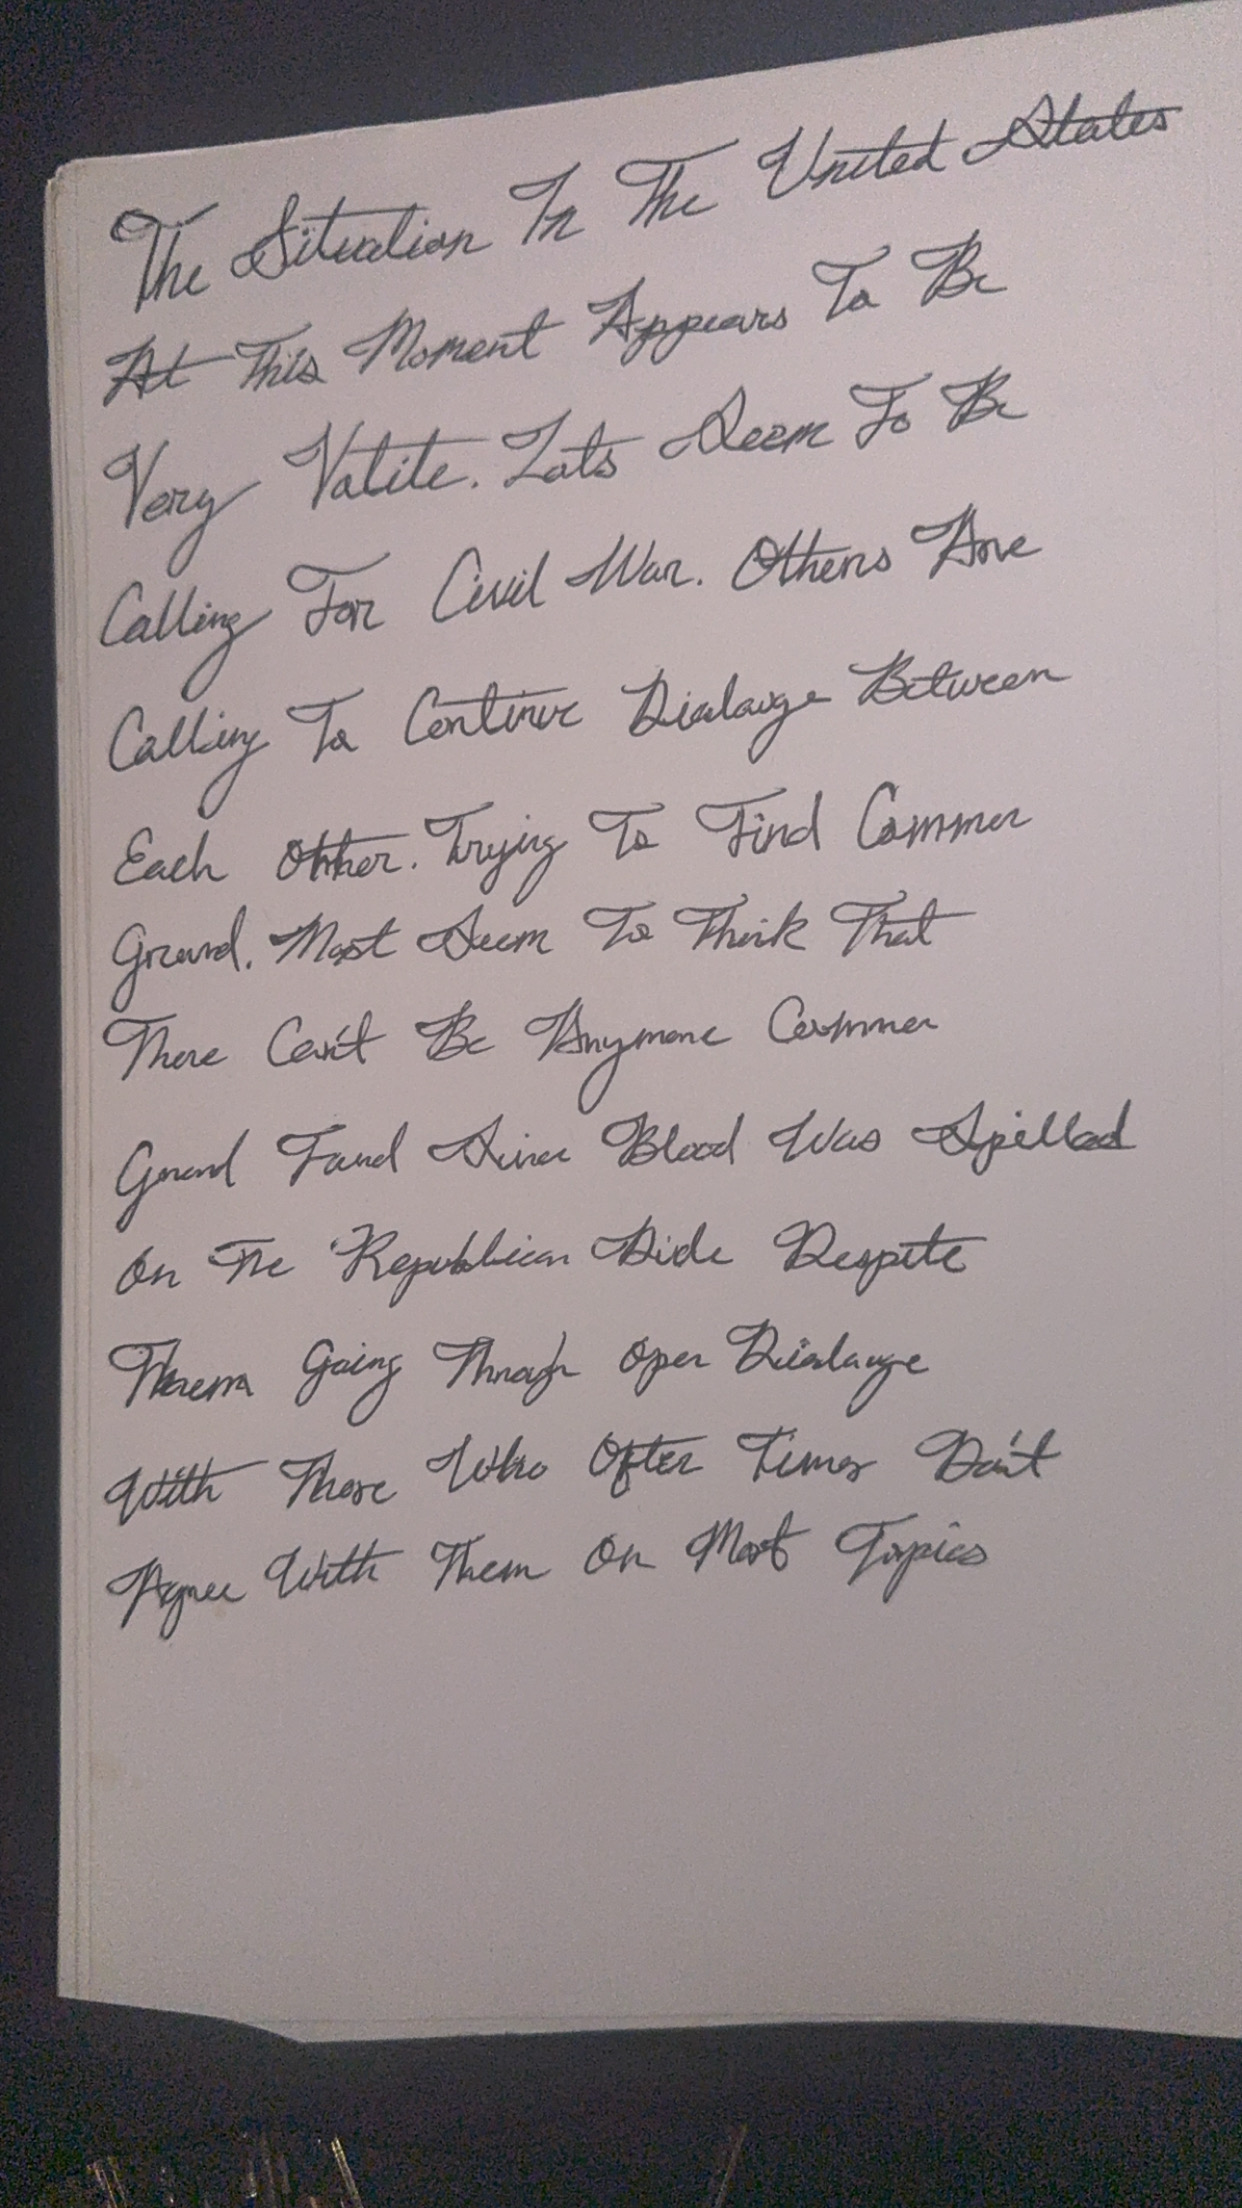 The Situation In The United States
At This Moment Appears To Be
Very Volitile. Lots Seem To Be
Calling For Civil War. Others Are
Calling To Continue Dialauge Between
Each Other. Trying To Find Common
Ground. Most Seem To Think That
There Can't Be Anymore Common
Ground Found Since Blood Was Spilled
On The Republican Side Despite
Them Going Through Open Dialauge
With Those Who Often Times Don't
Agree With Them On Most Topics